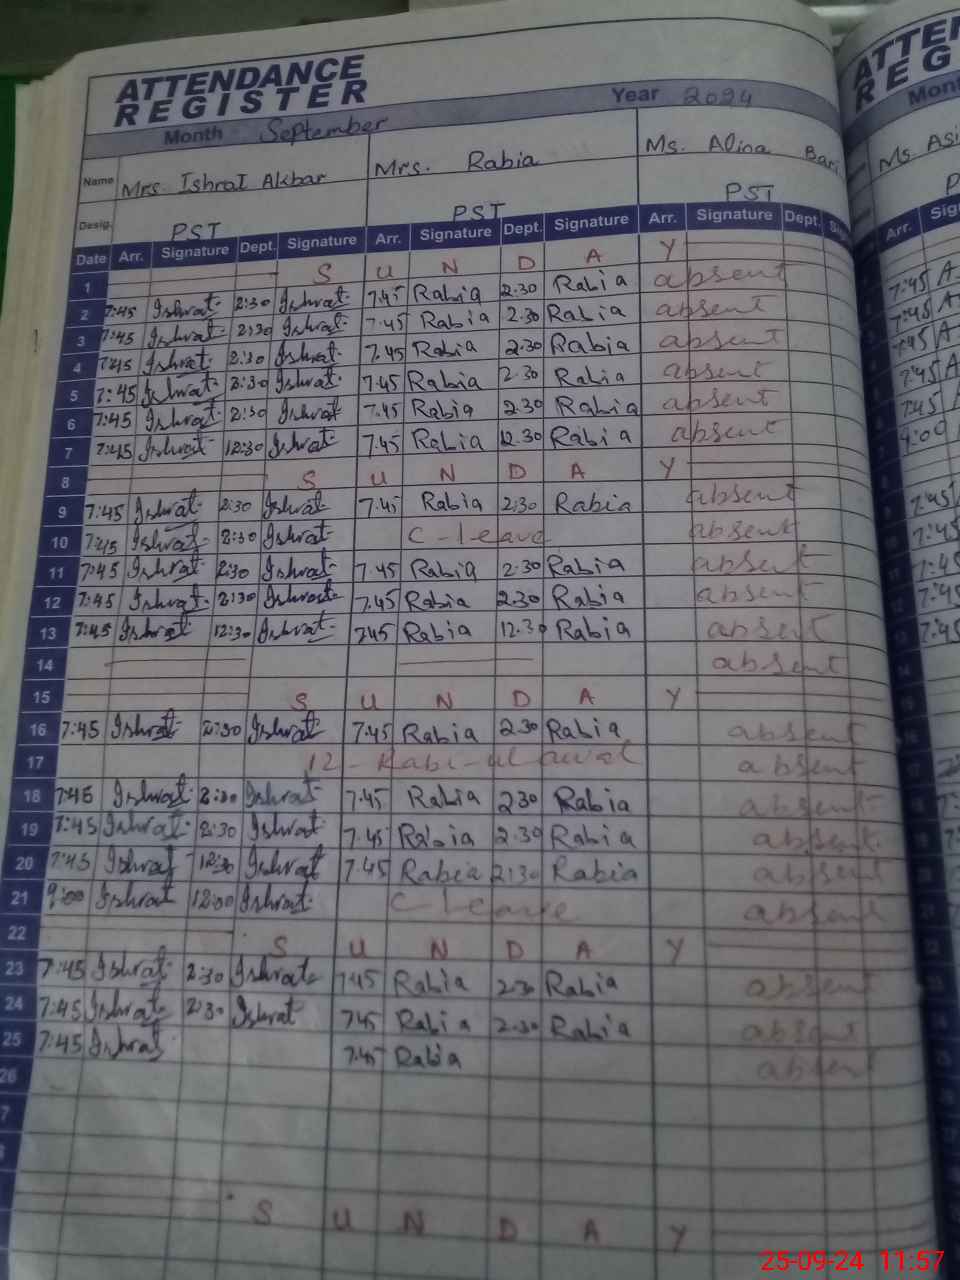 ATTENDANCE ATTEN
REGISTER REG
Month September Year 2024 Mont
Name Mrs. Ishrat Akbar Mrs. Rabia Ms. Alina Bari Ms Asi
Desig. PST PST PST P
Date Arr. Signature Dept. Signature Arr. Signature Dept. Signature Arr. Signature Dept. Arr. Sig
1 S U N D A Y
2 7:45 Ishrat 2:30 Ishrat 7.45 Rabia 2.30 Rabia absent 7:45 A
3 7:45 Ishrat 2:30 Ishrat 7.45 Rabia 2.30 Rabia absent 7:45 A
4 7:45 Ishrat 2:30 Ishrat 7.45 Rabia 2.30 Rabia absent 7:45 A
5 7:45 Ishrat 2:30 Ishrat 7.45 Rabia 2.30 Rabia absent 7:45 A
6 7:45 Ishrat 2:30 Ishrat 7.45 Rabia 2.30 Rabia absent 7:45
7 7:45 Ishrat 12:30 Ishrat 7.45 Rabia 12.30 Rabia absent 9:00
8 S U N D A Y
9 7:45 Ishrat 2:30 Ishrat 7.45 Rabia 2:30 Rabia absent 7:45
10 7:45 Ishrat 2:30 Ishrat C-leave absent 7:45
11 7:45 Ishrat 2:30 Ishrat 7.45 Rabia 2.30 Rabia absent 7:45
12 7:45 Ishrat 2:30 Ishrat 7.45 Rabia 2.30 Rabia absent 7:45
13 7:45 Ishrat 12:30 Ishrat 745 Rabia 12.30 Rabia absent 7:45
14 absent
15 S U N D A Y
16 7:45 Ishrat 2:30 Ishrat 7.45 Rabia 2.30 Rabia absent
17 12-Rabi-ul awal absent
18 7:45 Ishrat 2:30 Ishrat 7.45 Rabia 230 Rabia absent
19 7:45 Ishrat 2:30 Ishrat 7.45 Rabia 2.30 Rabia absent
20 7:45 Ishrat 12:30 Ishrat 7.45 Rabia 2:30 Rabia absent
21 9:00 Ishrat 12:00 Ishrat C-leave absent
22 S U N D A Y
23 7:45 Ishrat 2:30 Ishrat 7.45 Rabia 2.30 Rabia absent
24 7:45 Ishrat 2:30 Ishrat 745 Rabia 2.30 Rabia absent
25 7:45 Ishrat 7.45 Rabia absent
26
7
S U N D A Y
25-09-24 11:57